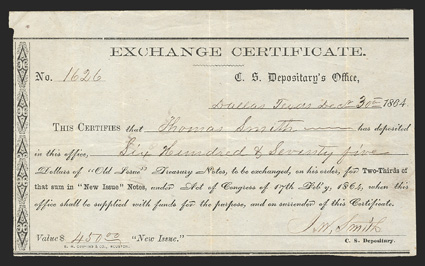 EXCHANGE CERTIFICATE.
No. 1626 C. S. Depositary's Office,
Dallas Texas Dec 30th 1864
THIS CERTIFIES that Thomas Smith has deposited
in this office, Six Hundred & Seventy five
Dollars of "Old Issue" Treasury Notes, to be exchanged, on his order, for Two-Thirds of
that sum in "New Issue" Notes, under Act of Congress of 17th Feb'y, 1864, when this
office shall be supplied with funds for the purpose, and on surrender of this Certificate.
J. W. Smith
Value $ 450.00 "New Issue." C. S. Depositary.